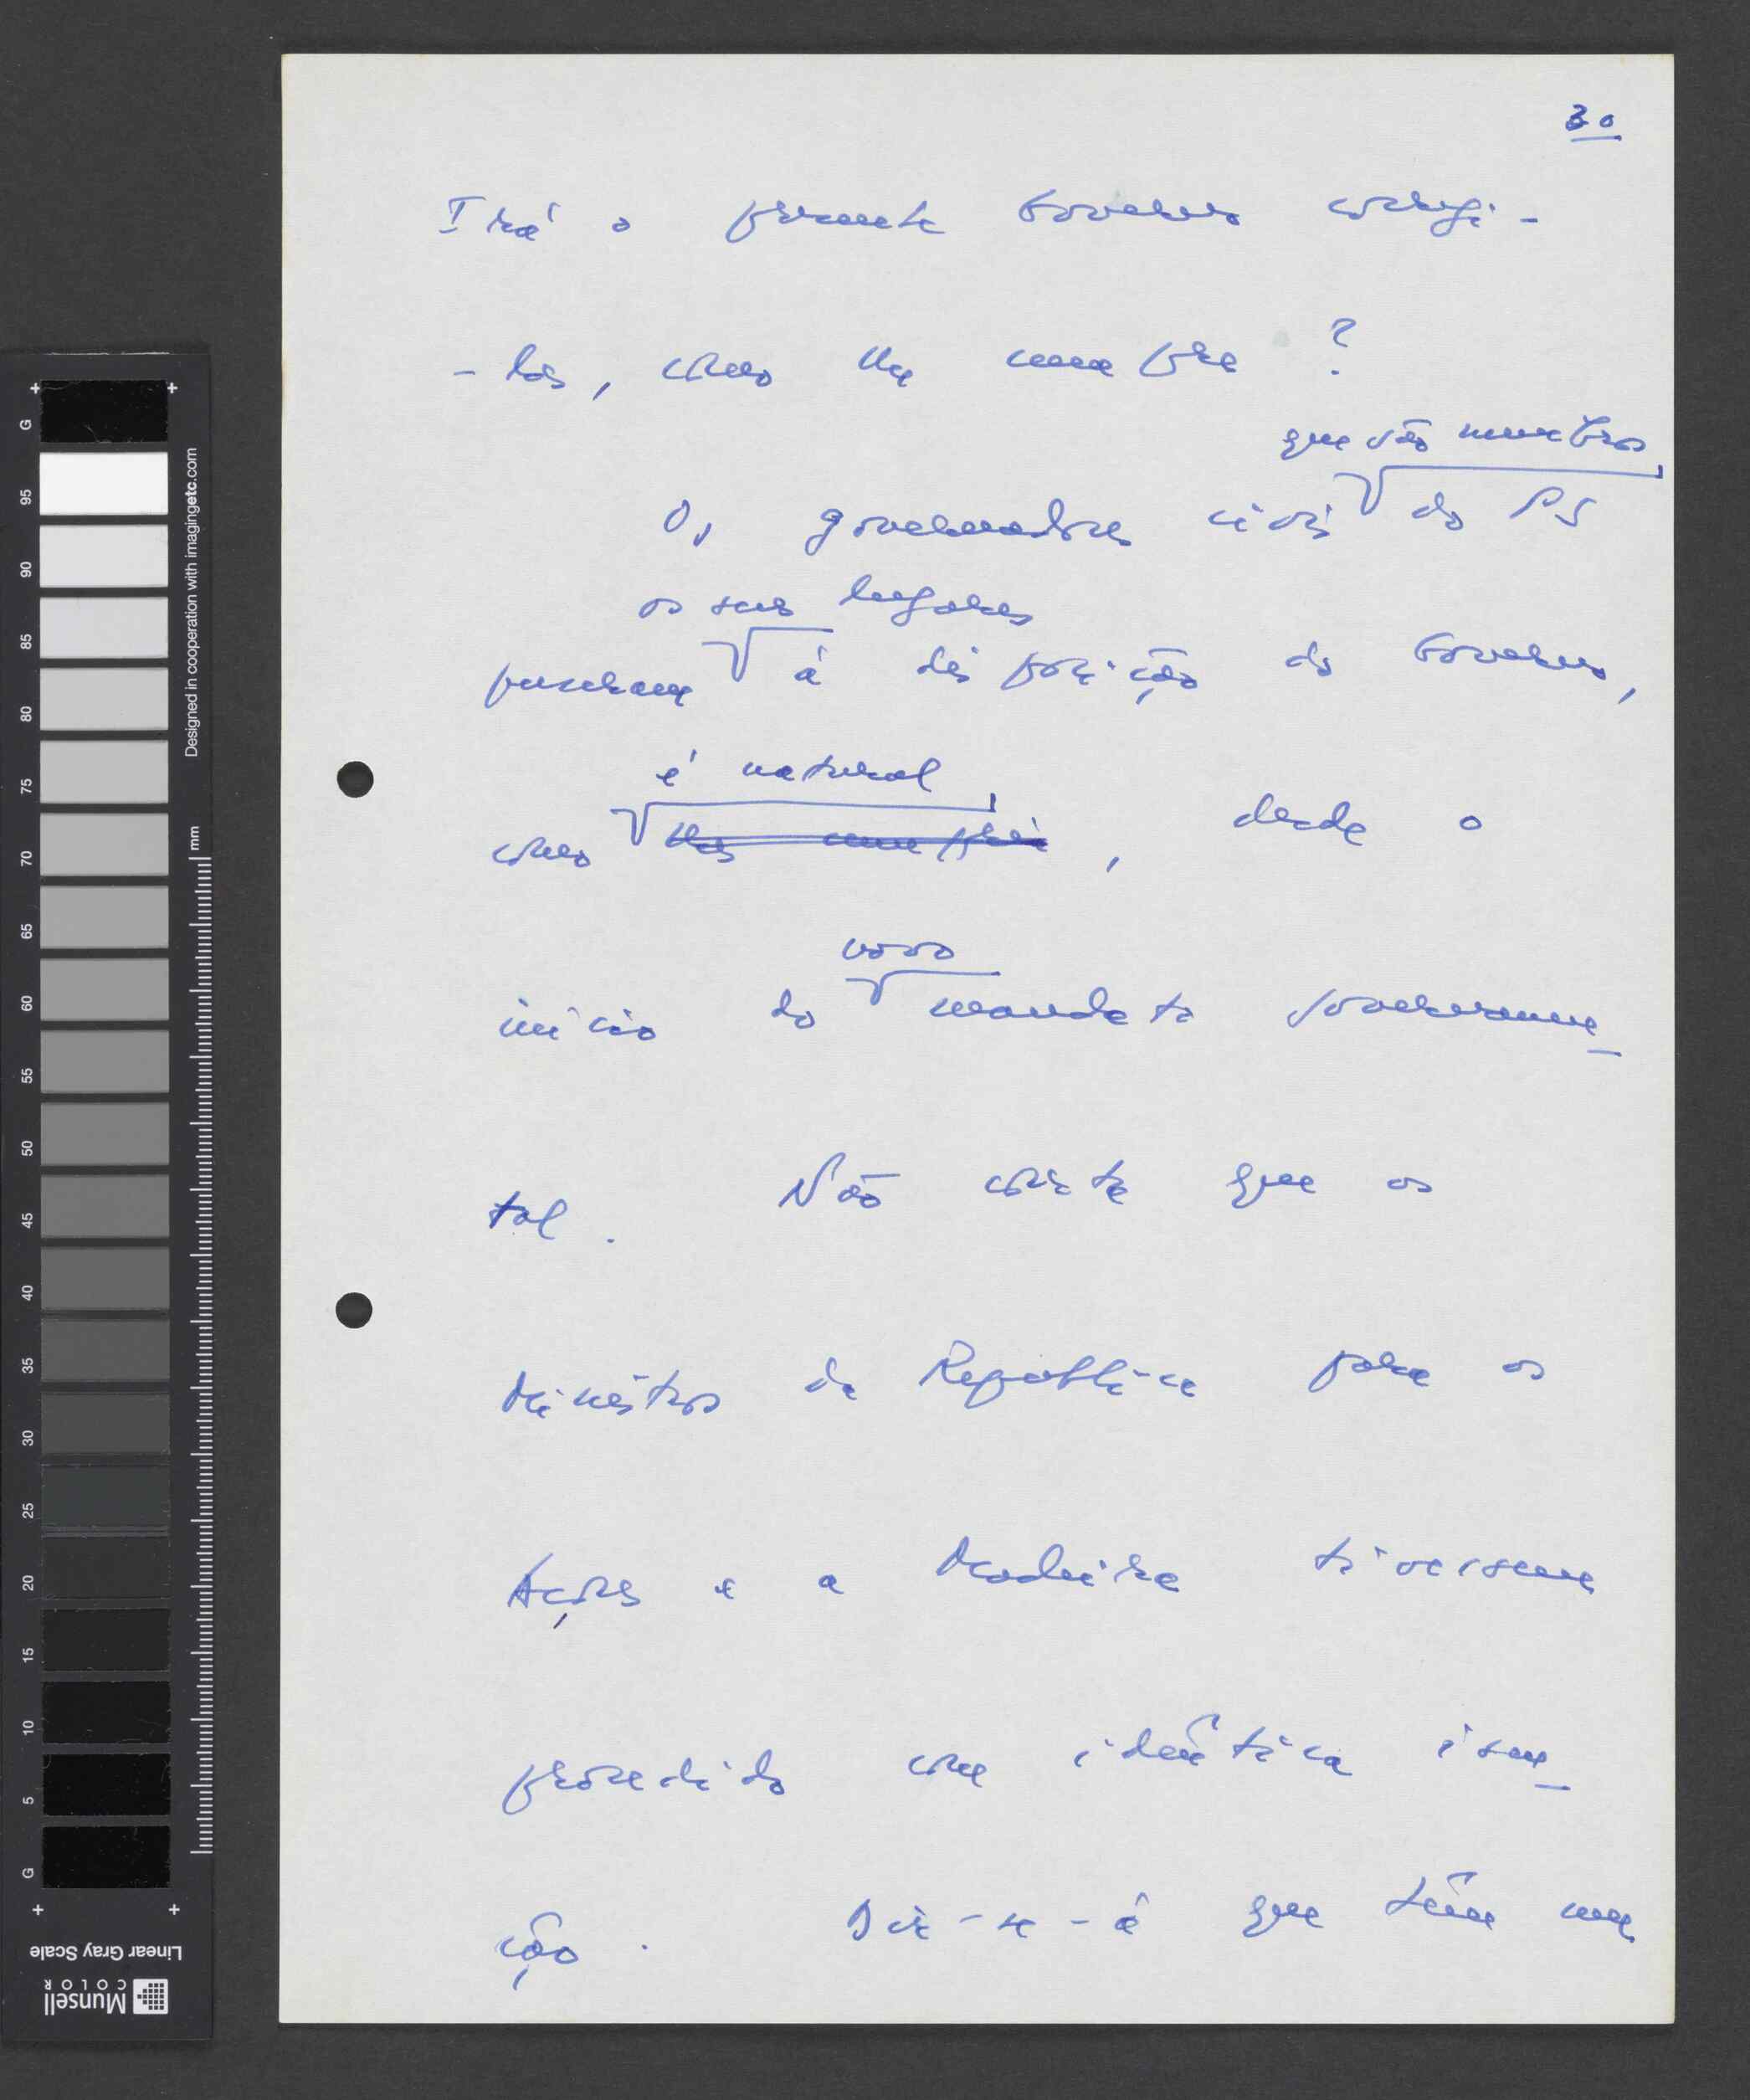 30
Irá o presente Governo corrigi-
-los, como lhe cumpre?
que são membros
Os governadores civis do PS
os seus lugares
puseram à disposição do Governo,
é natural
como lhes cumpria, desde o
novo
início do mandato governamen-
tal. Não consta que os
Ministros da República para os
Açores e a Madeira tivessem
procedido com idêntica isen-
ção. Dir-se-á que têm um
G
95
90
85
80
75
70
65
60
55
50
45
40
35
30
25
20
15
10
5
G
mm
Designed in cooperation with imagingetc.com
Linear Gray Scale
Munsell
COLOR